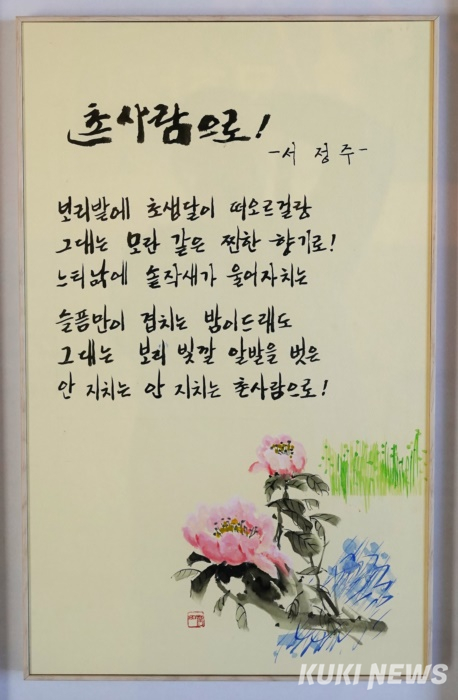 촌사람으로!
-서정주-
보리밭에 초생달이 떠오르걸랑
그대는 모란 같은 찐한 향기로!
느티낡에 솥작새가 울어자치는
슬픔만이 겹치는 밤이드래도
그대는 보리 빛깔 알발을 벗은
안 지치는 안 지치는 촌사람으로!
KUKI NEWS